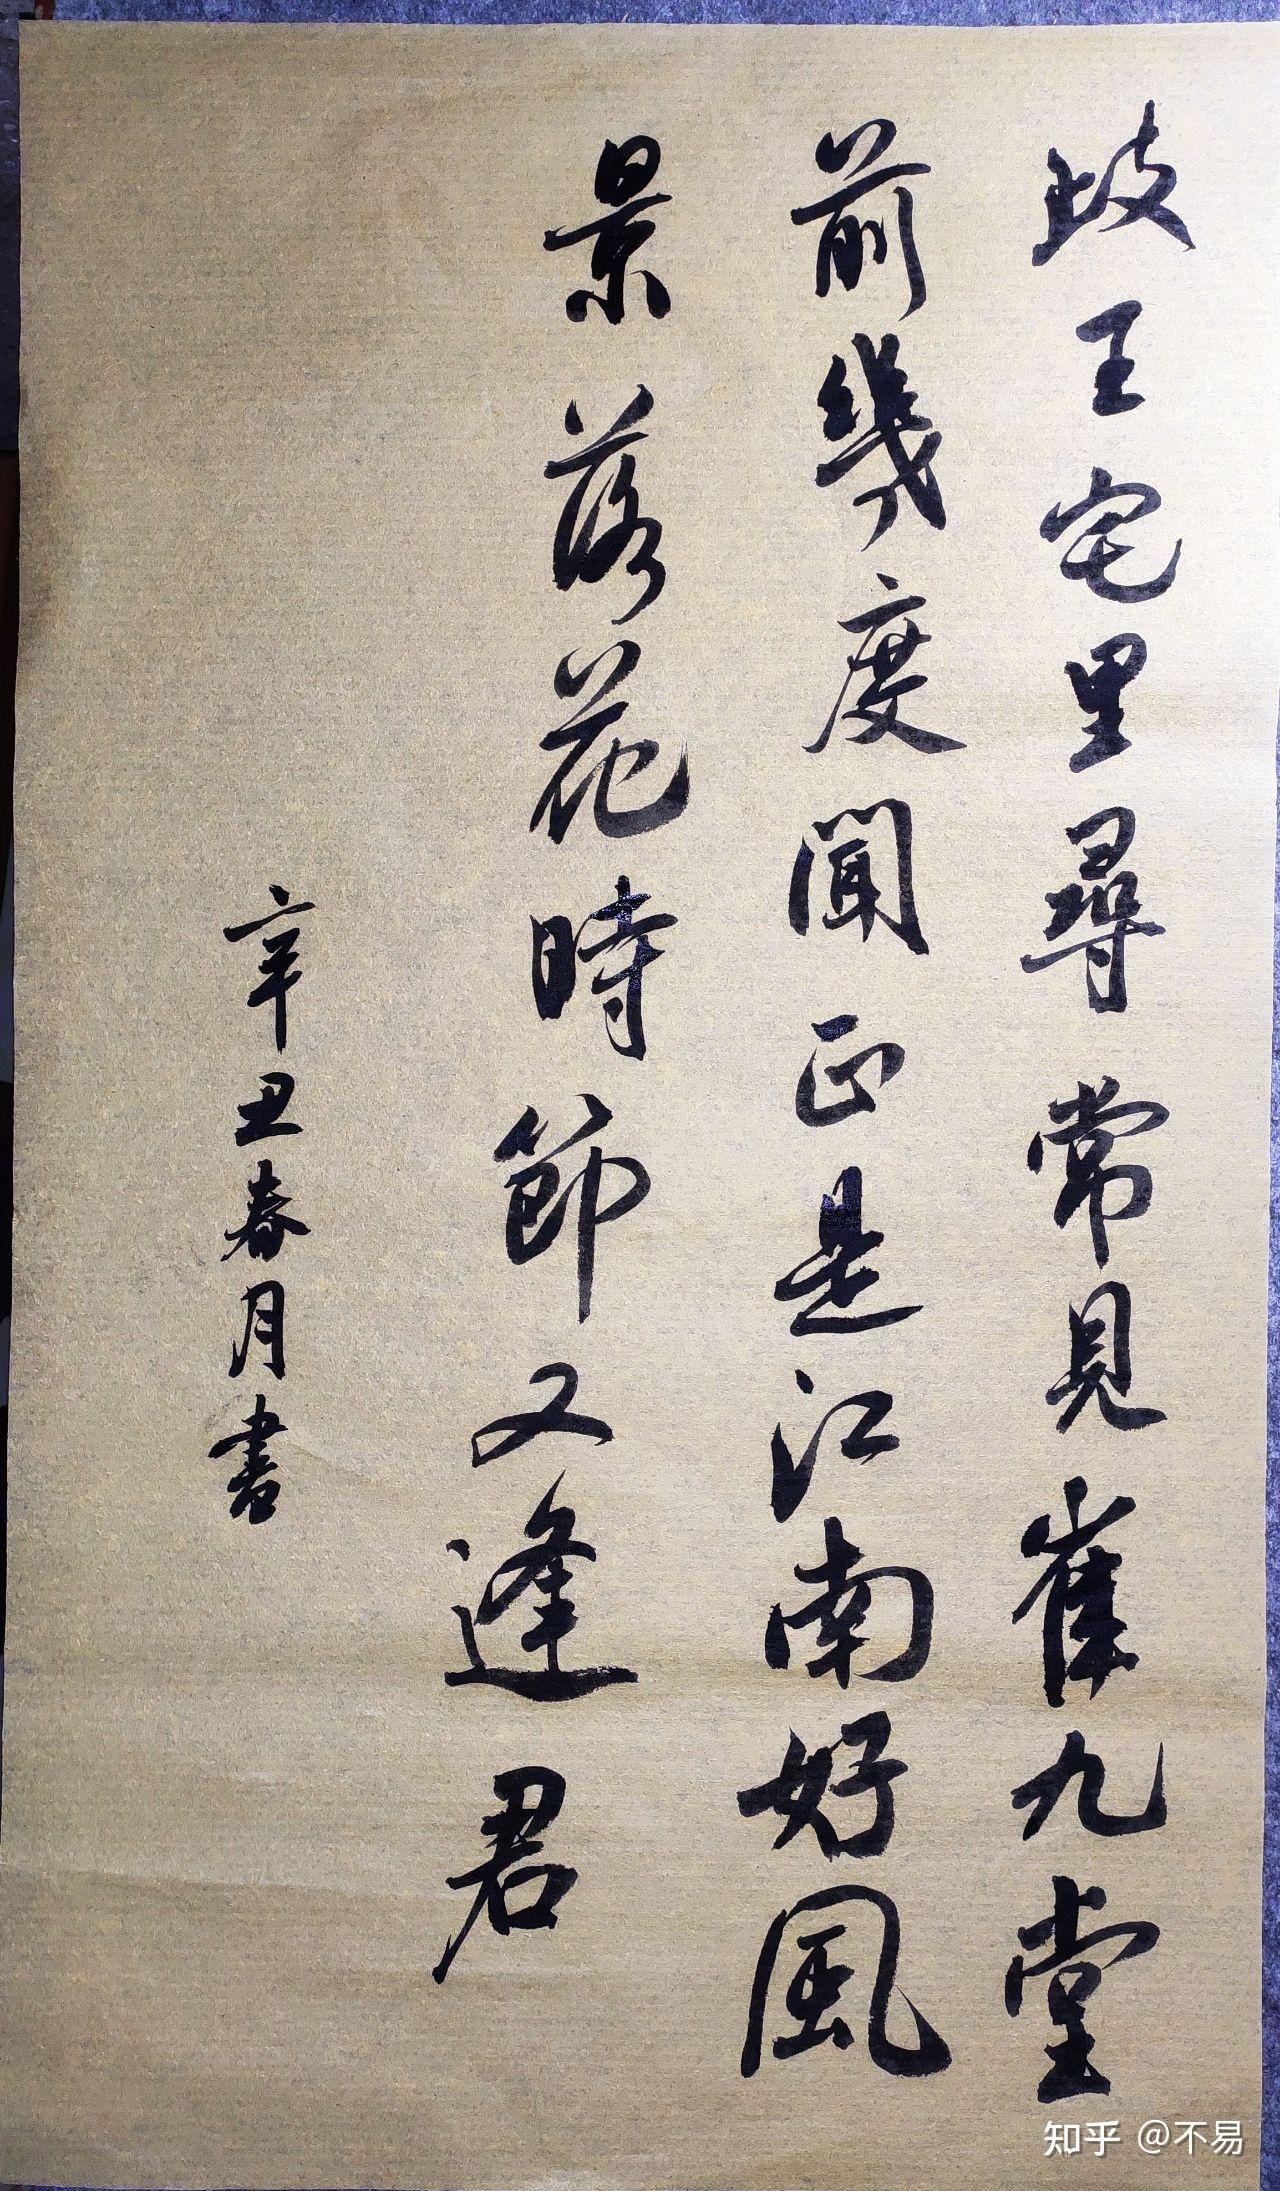 岐王宅里尋常見崔九堂
前幾度聞正是江南好風
景落花時節又逢君
辛丑春月書
知乎 @不易